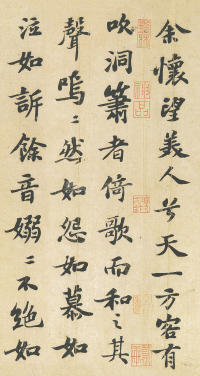 余懷望美人兮天一方客有
吹洞簫者倚歌而和之其
聲嗚〻然如怨如慕如
泣如訴餘音嫋〻不絕如